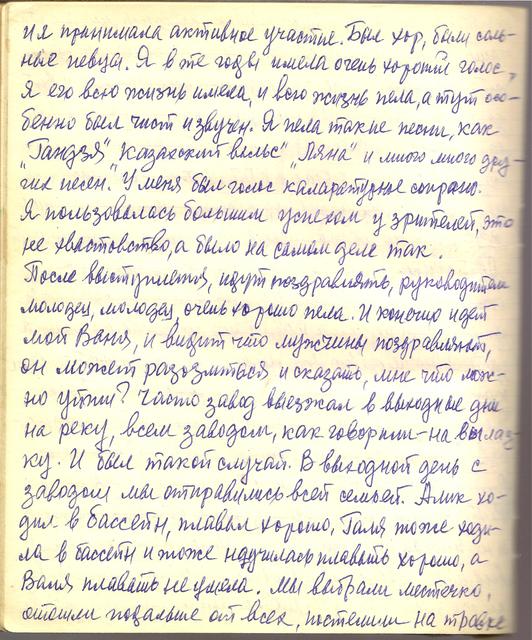 и я принимала активное участие. Был хор, были соль-
ные певцы. Я в те годы имела очень хороший голос,
Я его всю жизнь имела, и всю жизнь пела, а тут осо-
бенно был чист и звучен. Я пела такие песни, как
"Гандзя" Казахский вальс" "Ляна" и много много дру-
гих песен." У меня был голос каларатурное сопрано.
Я пользовалась большим успехом у зрителей, это
не хвастовство, а было на самом деле так.
После выступления, идут поздравлять, руководители
молодец, молодец, очень хорошо пела. И конечно идет
мой Ваня, и видит что мужчины поздравляют,
он может разозлиться и сказать, мне что мож-
но уйти? Часто завод выезжал в выходные дни
на реку, всем заводом, как говорили - на вылаз-
ку. И был такой случай. В выходной день с
заводом мы отправились всей семьей. Алик хо-
дил в бассейн, плавал хорошо, Галя тоже ходи-
ла в бассейн и тоже научилась плавать хорошо, а
Валя плавать не умела. Мы выбрали местечко,
отошли подальше от всех, постелили на травке